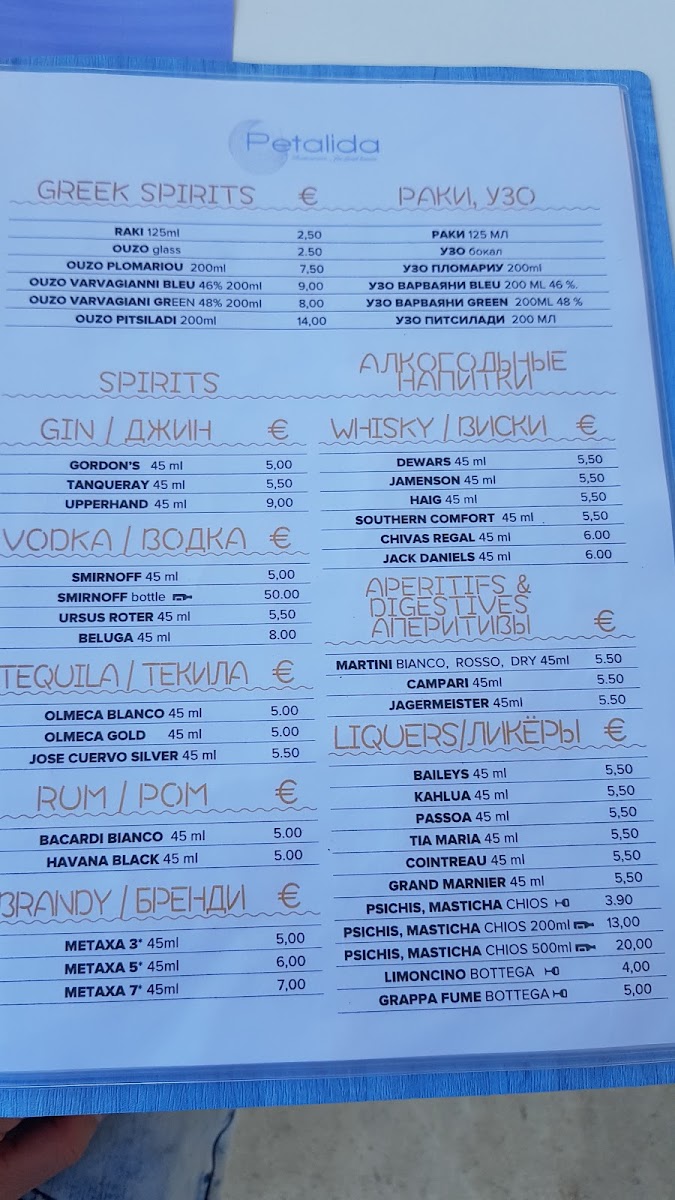 Petalida
GREEK SPIRITS € РАКИ, УЗО
RAKI 125ml 2,50 РАКИ 125 МЛ
OUZO glass 2.50 УЗО бокал
OUZO PLOMARIOU 200ml 7,50 УЗО ПЛОМАРИУ 200ml
OUZO VARVAGIANNI BLEU 46% 200ml 9,00 УЗО ВАРВАЯНИ BLEU 200 ML 46 %.
OUZO VARVAGIANI GREEN 48% 200ml 8,00 УЗО ВАРВАЯНИ GREEN 200ML 48 %
OUZO PITSILADI 200ml 14,00 УЗО ПИТСИЛАДИ 200 МЛ
SPIRITS
АЛКОГОДЬНЫЕ
НАПИТКИ
GIN / ДЖИН €
GORDON'S 45 ml 5,00
TANQUERAY 45 ml 5,50
UPPERHAND 45 ml 9,00
VODKA / ВОДКА €
SMIRNOFF 45 ml 5,00
SMIRNOFF bottle 50.00
URSUS ROTER 45 ml 5,50
BELUGA 45 ml 8.00
TEQUILA / ТЕКИЛА €
OLMECA BLANCO 45 ml 5.00
OLMECA GOLD 45 ml 5.00
JOSE CUERVO SILVER 45 ml 5.50
RUM / РОМ €
BACARDI BIANCO 45 ml 5.00
HAVANA BLACK 45 ml 5.00
BRANDY / БРЕНДИ €
METAXA 3* 45ml 5,00
METAXA 5* 45ml 6,00
METAXA 7* 45ml 7,00
WHISKY / ВИСКИ €
DEWARS 45 ml 5,50
JAMENSON 45 ml 5,50
HAIG 45 ml 5,50
SOUTHERN COMFORT 45 ml 5,50
CHIVAS REGAL 45 ml 6.00
JACK DANIELS 45 ml 6.00
APERITIFS &
DIGESTIVES
АПЕРИТИВЫ €
MARTINI BIANCO, ROSSO, DRY 45ml 5.50
CAMPARI 45ml 5.50
JAGERMEISTER 45ml 5.50
LIQUERS/ЛИКЁРЫ €
BAILEYS 45 ml 5,50
KAHLUA 45 ml 5,50
PASSOA 45 ml 5,50
TIA MARIA 45 ml 5,50
COINTREAU 45 ml 5,50
GRAND MARNIER 45 ml 5,50
PSICHIS, MASTICHA CHIOS 3.90
PSICHIS, MASTICHA CHIOS 200ml 13,00
PSICHIS, MASTICHA CHIOS 500ml 20,00
LIMONCINO BOTTEGA 4,00
GRAPPA FUME BOTTEGA 5,00